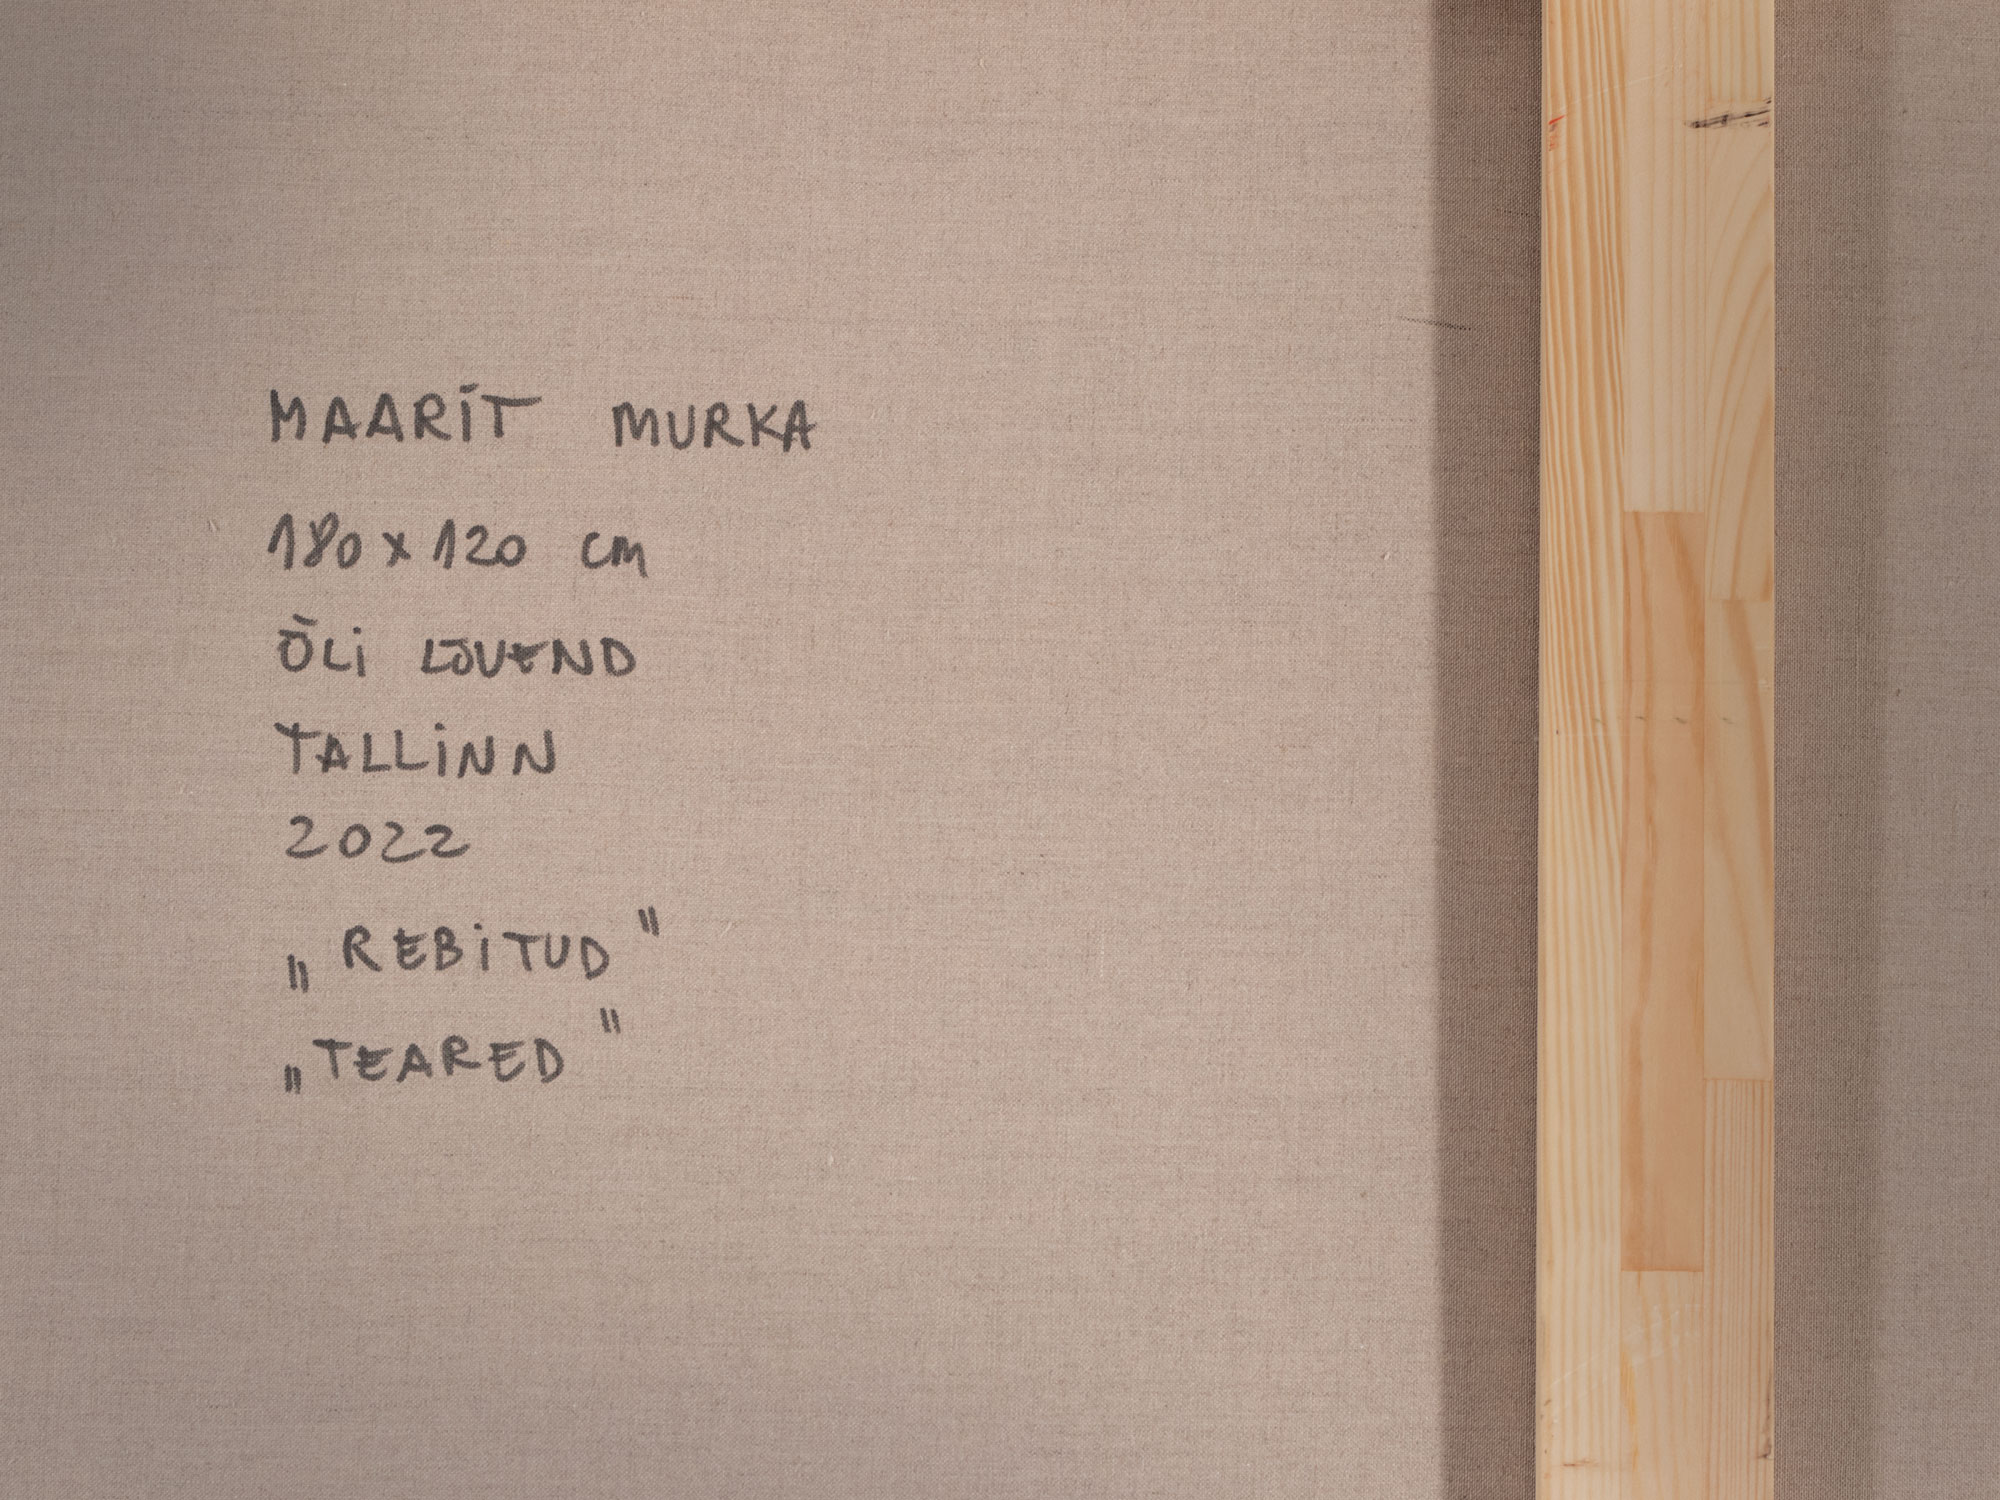 MAARIT MURKA
180 x 120 cm
ÕLI LÕUEND
TALLINN
2022
„REBITUD"
„TEARED"